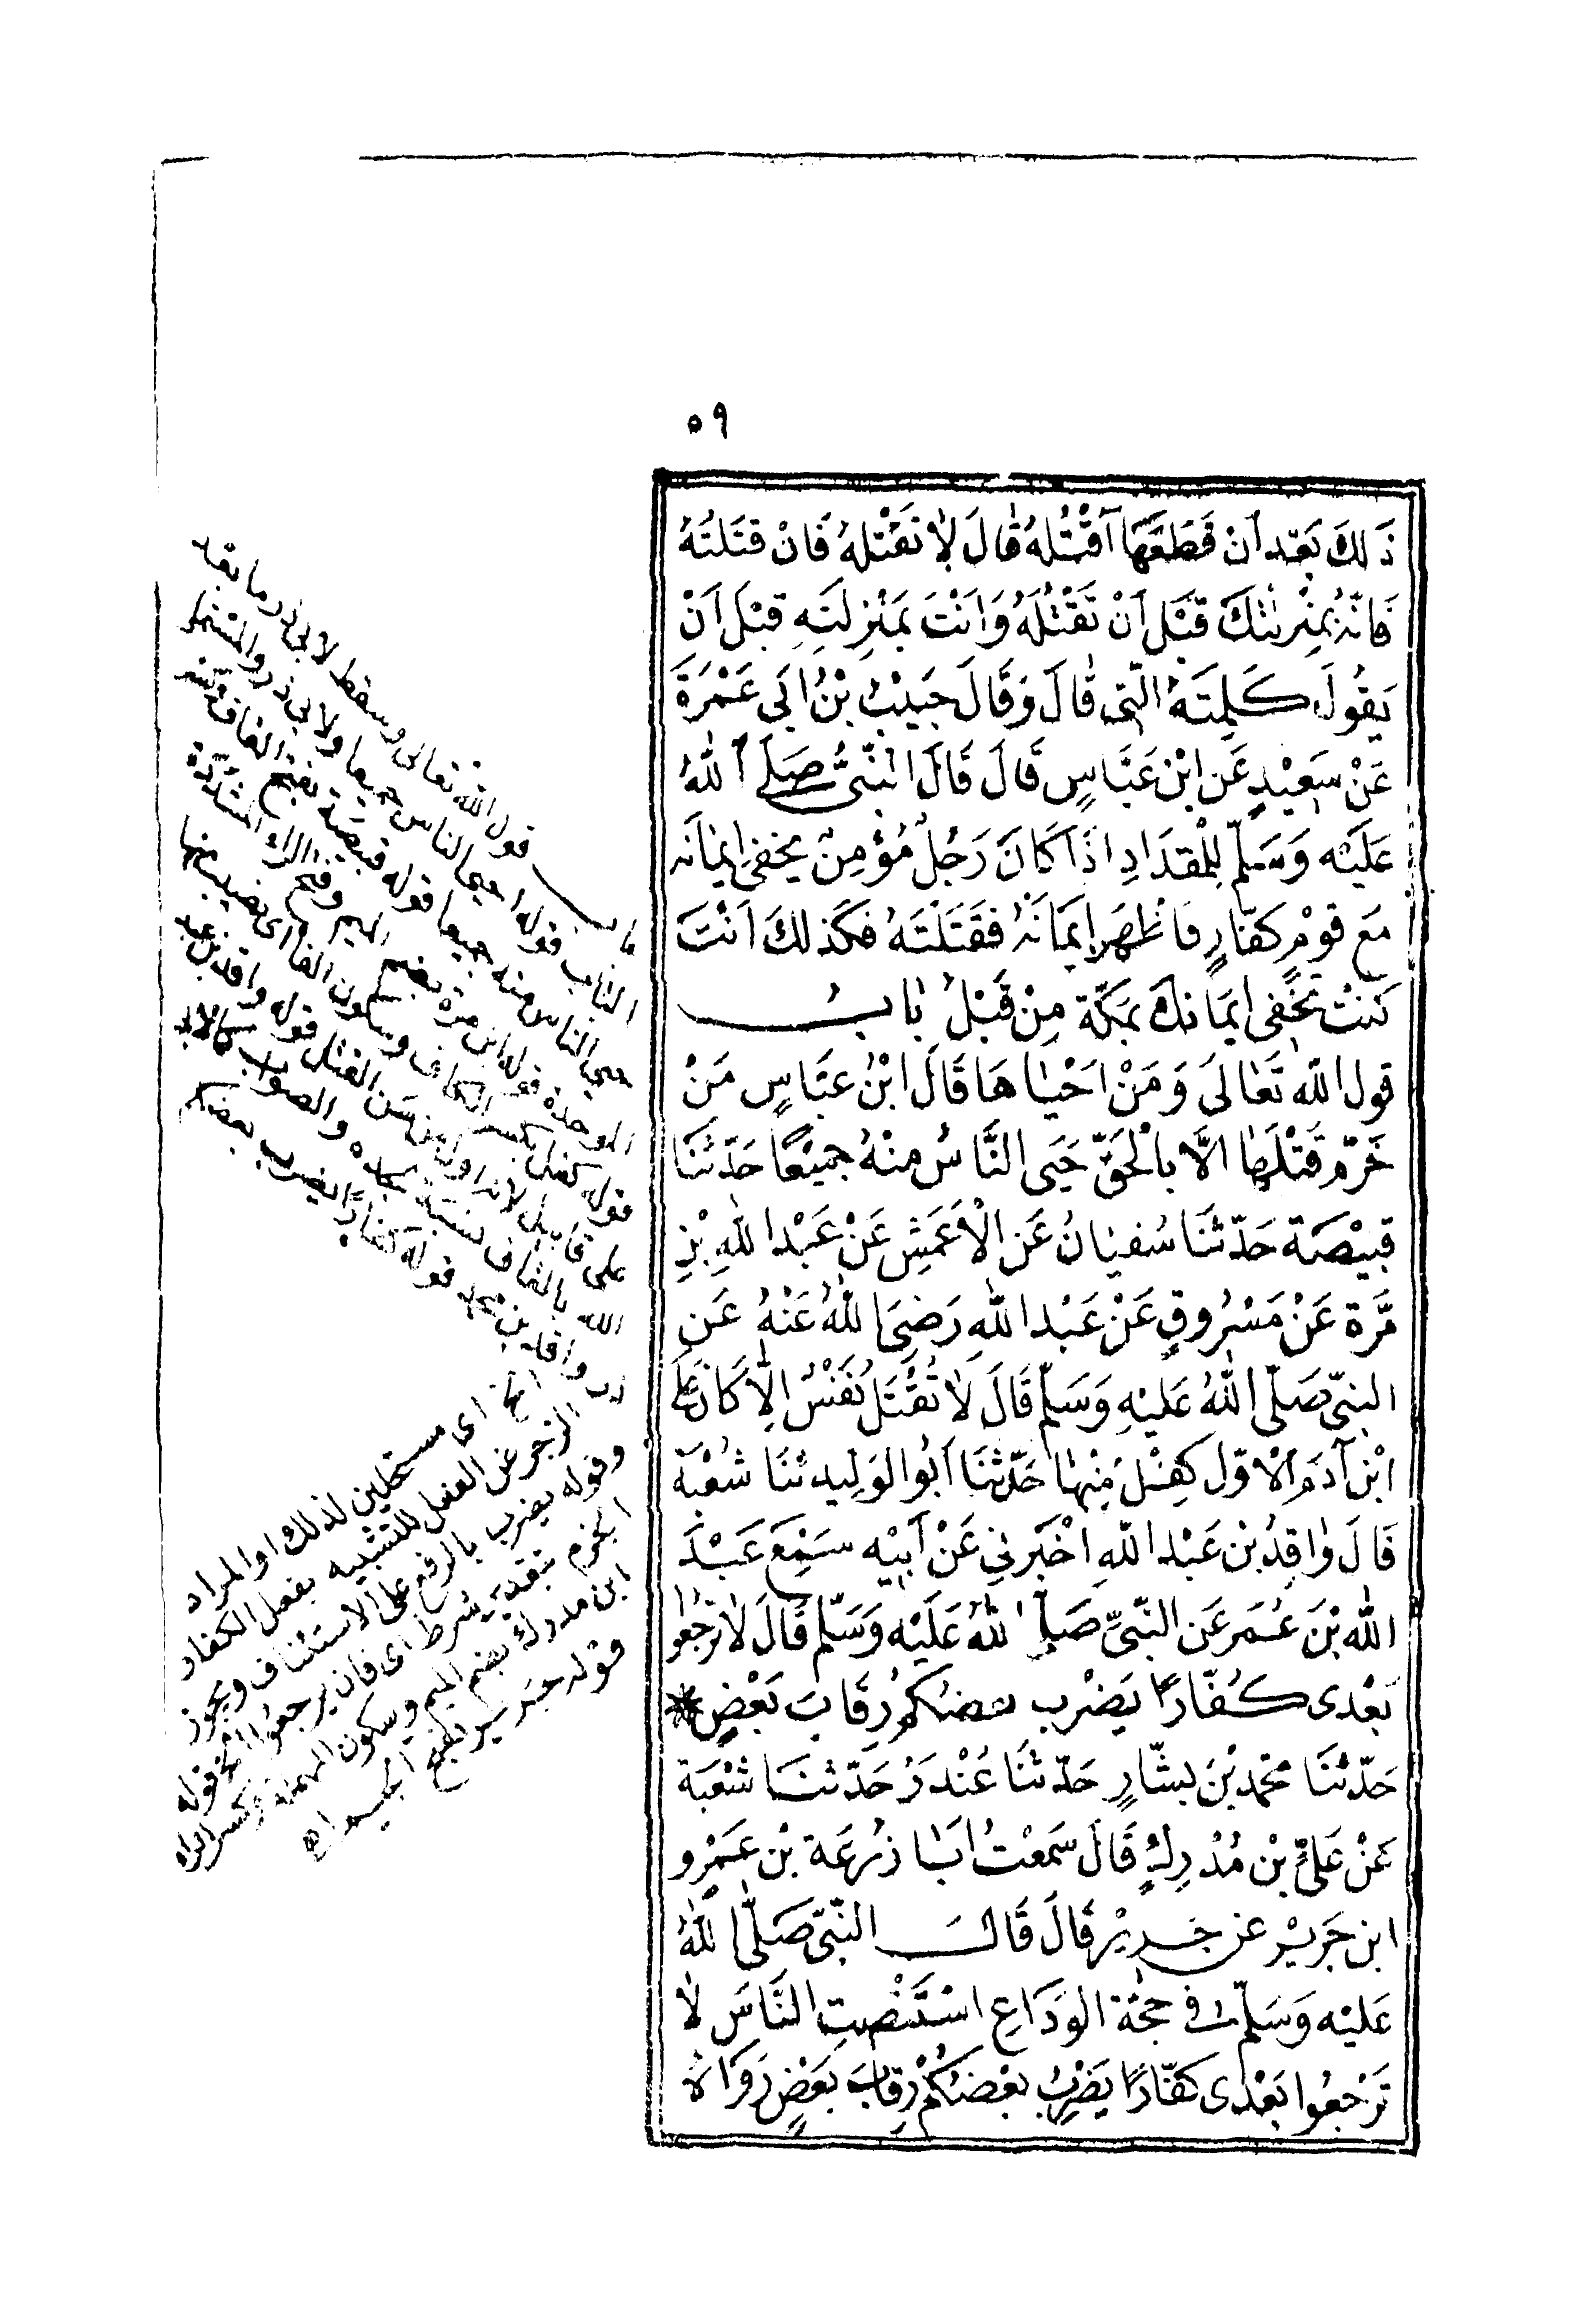 ٥٩
ذَلِكَ بَعْدَ اَنْ قَطَعَهَا آقْتُلُهُ قَالَ لَا تَقْتُلْهُ فَاِنْ قَتَلْتَهُ
فَاِنَّهُ بِمَنْزِلَتِكَ قَبْلَ اَنْ تَقْتُلَهُ وَاَنْتَ بِمَنْزِلَتِهِ قَبْلَ اَنْ
يَقُولَ كَلِمَتَهُ الَّتِى قَالَ وَقَالَ حَبِيبُ بْنُ اَبِى عَمْرَةَ
عَنْ سَعِيْدٍ عَنِ ابْنِ عَبَّاسٍ قَالَ قَالَ النَّبِىُّ صَلَّى اللّٰهُ
عَلَيْهِ وَسَلَّمَ لِلْمِقْدَادِ اِذَا كَانَ رَجُلٌ مُؤْمِنٌ يُخْفِى اِيمَانَهُ
مَعَ قَوْمٍ كُفَّارٍ فَاَظْهَرَ اِيمَانَهُ فَقَتَلْتَهُ فَكَذَلِكَ اَنْتَ
كُنْتَ تُخْفِى اِيمَانَكَ بِمَكَّةَ مِنْ قَبْلُ بَابُ
قَوْلِ اللّٰهِ تَعَالَى وَمَنْ اَحْيَاهَا قَالَ ابْنُ عَبَّاسٍ مَنْ
حَرَّمَ قَتْلَهَا اِلَّا بِالْحَقِّ حَيِىَ النَّاسُ مِنْهُ جَمِيْعًا حَدَّثَنَا
قَبِيْصَةُ حَدَّثَنَا سُفْيَانُ عَنِ الْاَعْمَشِ عَنْ عَبْدِ اللّٰهِ بْنِ
مُرَّةَ عَنْ مَسْرُوقٍ عَنْ عَبْدِ اللّٰهِ رَضِىَ اللّٰهُ عَنْهُ عَنِ
النَّبِىِّ صَلَّى اللّٰهُ عَلَيْهِ وَسَلَّمَ قَالَ لَا تُقْتَلُ نَفْسٌ اِلَّا كَانَ عَلَى
ابْنِ آدَمَ الْاَوَّلِ كِفْلٌ مِنْهَا حَدَّثَنَا اَبُو الوَلِيدِ ثَنَا شُعْبَةُ
قَالَ وَاقِدُ بْنُ عَبْدِ اللّٰهِ اَخْبَرَنِى عَنْ اَبِيْهِ سَمِعَ عَبْدَ
اللّٰهِ بْنَ عُمَرَ عَنِ النَّبِىِّ صَلَّى اللّٰهُ عَلَيْهِ وَسَلَّمَ قَالَ لَا تَرْجِعُوا
بَعْدِى كُفَّارًا يَضْرِبُ بَعْضُكُمْ رِقَابَ بَعْضٍ *
حَدَّثَنَا مُحَمَّدُ بْنُ بَشَّارٍ حَدَّثَنَا غُنْدَرٌ حَدَّثَنَا شُعْبَةُ
عَنْ عَلِىِّ بْنِ مُدْرِكٍ قَالَ سَمِعْتُ اَبَا زُرْعَةَ بْنَ عَمْرِو
ابْنِ جَرِيْرٍ عَنْ جَرِيْرٍ قَالَ قَالَ النَّبِىُّ صَلَّى اللّٰهُ
عَلَيْهِ وَسَلَّمَ فِى حَجَّةِ الوَدَاعِ اسْتَنْصِتِ النَّاسَ لَا
تَرْجِعُوا بَعْدِى كُفَّارًا يَضْرِبُ بَعْضُكُمْ رِقَابَ بَعْضٍ رَوَاهُ
باب قول الله تعالى وسقط لأبى ذر ما بعد
الباب قوله احيا الناس جميعا ولابى ذر والمستملى
حيى الناس منه جميعا قوله قبيصة بفتح القاف وكسر
الموحدة قوله ابن مرة بضم الميم وفتح الراء المشددة
قوله كفل بكسر الكاف وسكون الفاء اى نصيب منها
على قابيل لانه اول من سن القتل قوله واقد بن عبد
الله بالقاف نسبة لجده والصواب كما
واقد بن محمد قوله كفارا يضرب بعضكم
الخ اى مستحلين لذلك او المراد
الزجر عن الفعل للتشبيه بفعل الكفار
وقوله يضرب بالرفع على الاستئناف ويجوز
الجزم بتقدير شرط اى فان يرجعوا الخ قوله
ابن مدرك بضم الميم وسكون المهملة وكسر الراء
قوله جرير بفتح الجيم اه